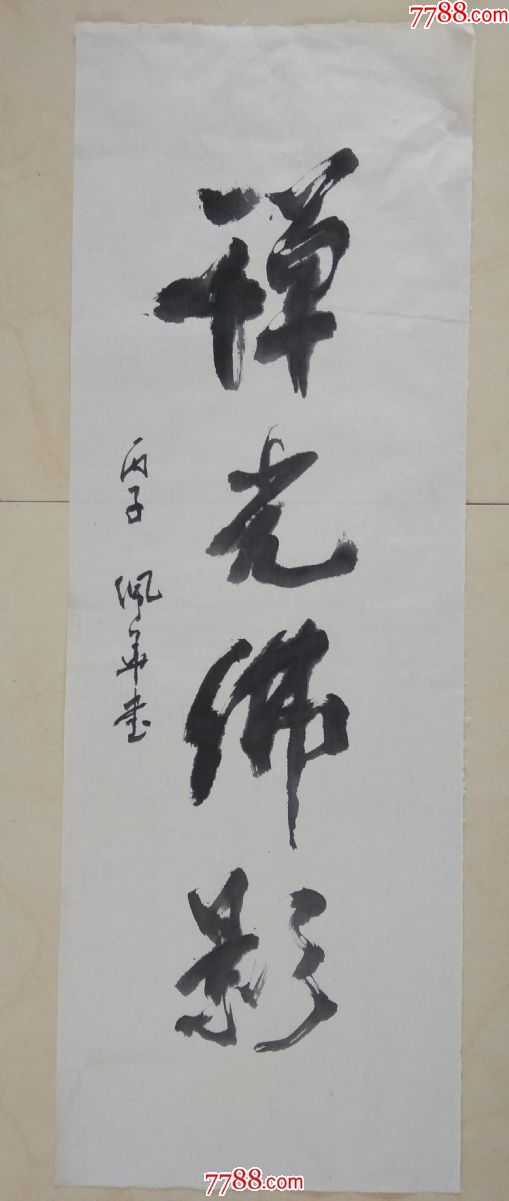 7788.com
禪光佛影
丙子 佩华书
7788.com